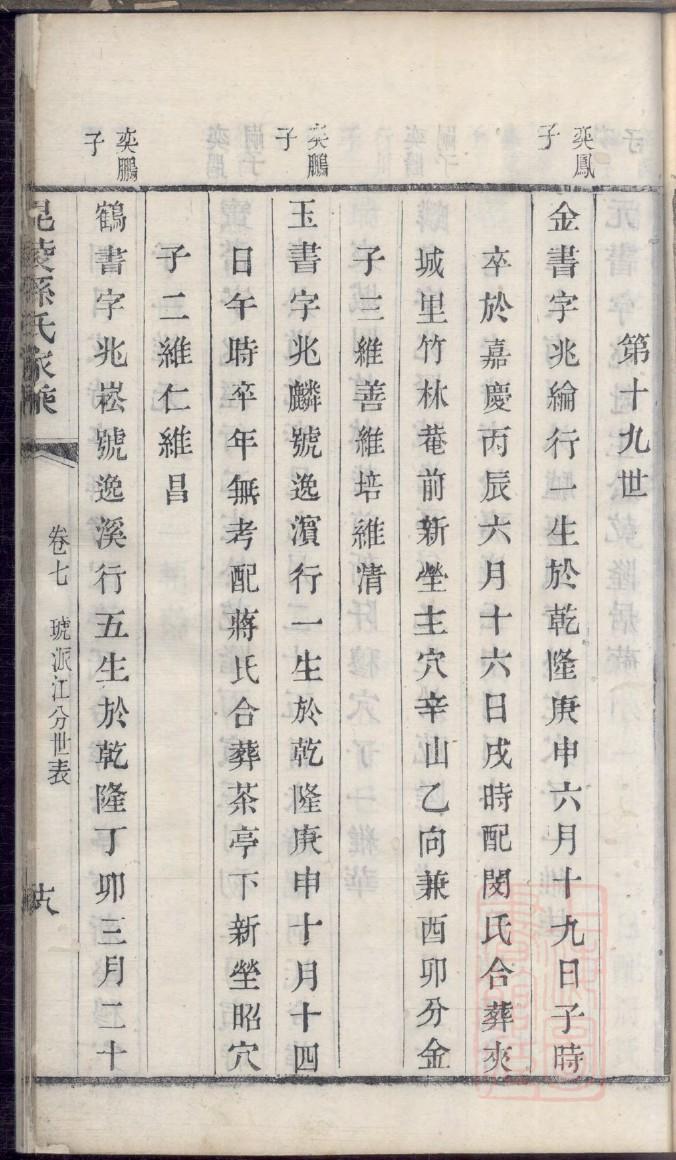 第十九世
奕鳳子
金書字兆綸行一生於乾隆庚申六月十九日子時
卒於嘉慶丙辰六月十六日戌時配閔氏合葬夾
城里竹林菴前新塋主穴辛山乙向兼酉卯分金
子三維善維培維清
奕鵬子
玉書字兆麟號逸濱行一生於乾隆庚申十月十四
日午時卒年無考配蔣氏合葬茶亭下新塋昭穴
子二維仁維昌
奕鵬子
鶴書字兆崧號逸溪行五生於乾隆丁卯三月二十
毘陵孫氏家乘
卷七 琥派江分世表
十八